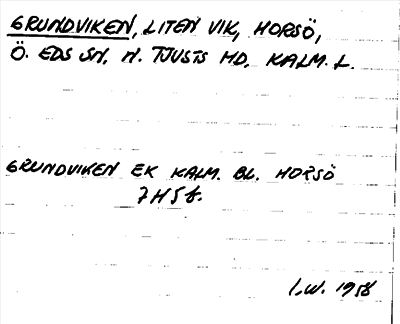 GRUNDVIKEN, LITEN VIK, HORSÖ,
Ö. EDS SN, N. TJUSTS HD, KALM. L.
GRUNDVIKEN EK KALM. BL. HORSÖ
7H5f.
I.W. 1958